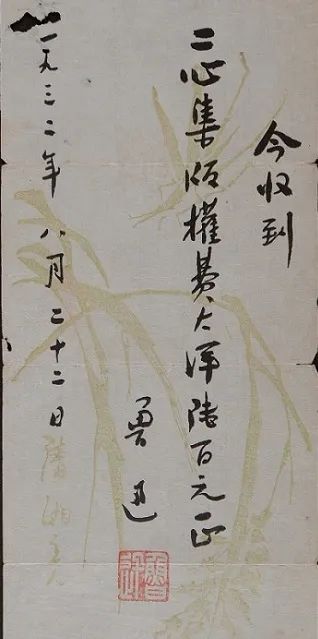 今收到
二心集版權費大洋陸百元正
魯迅
魯迅
一九三二年八月二十二日